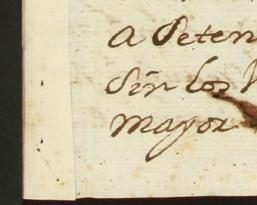 a Seten
Sin los
mayor